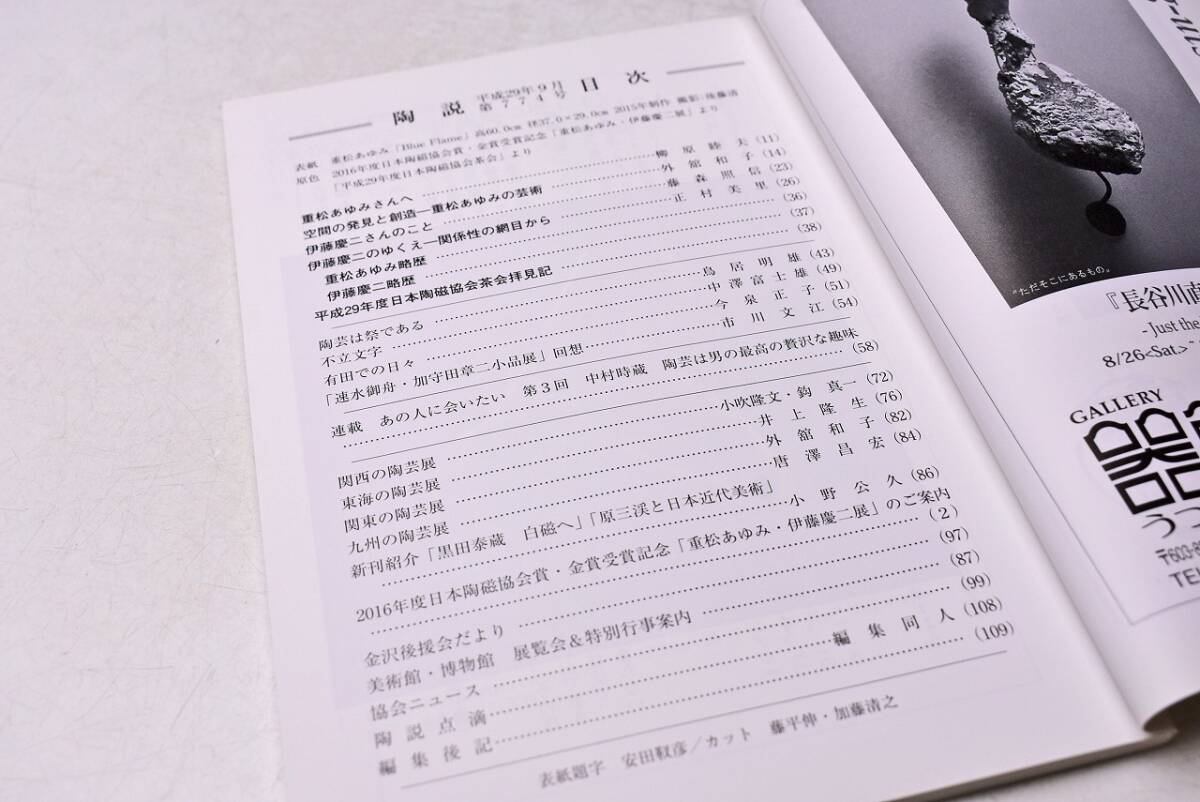 陶説 平成29年9月 第774号 目次
表紙 重松あゆみ「Blue Flame」高60.0cm 径37.0×29.0cm 2015年制作 撮影:後藤清
原色 2016年度日本陶磁協会賞・金賞受賞記念「重松あゆみ・伊藤慶二展」より
「平成29年度日本陶磁協会茶会」より
重松あゆみさんへ 柳原睦夫 (11)
空間の発見と創造―重松あゆみの芸術 外舘和子 (14)
伊藤慶二さんのこと 藤森照信 (23)
伊藤慶二のゆくえ―関係性の網目から 正村美里 (26)
重松あゆみ略歴 (36)
伊藤慶二略歴 (37)
平成29年度日本陶磁協会茶会拝見記 (38)
陶芸は祭である 鳥居明雄 (43)
不立文字 中澤富士雄 (49)
有田での日々 今泉正子 (51)
「速水御舟・加守田章二小品展」回想 市川文江 (54)
連載 あの人に会いたい 第3回 中村時蔵 陶芸は男の最高の贅沢な趣味
(58)
関西の陶芸展 小吹隆文・鈎真一 (72)
東海の陶芸展 井上隆生 (76)
関東の陶芸展 外舘和子 (82)
九州の陶芸展 唐澤昌宏 (84)
新刊紹介「黒田泰蔵 白磁へ」「原三渓と日本近代美術」
小野公久 (86)
2016年度日本陶磁協会賞・金賞受賞記念「重松あゆみ・伊藤慶二展」のご案内
(2)
金沢後援会だより (97)
美術館・博物館 展覧会&特別行事案内 (87)
協会ニュース (99)
陶説点滴 編集同人 (108)
編集後記 (109)
表紙題字 安田靫彦/カット 藤平伸・加藤清之
"ただそこにあるもの"
『長谷川直
-Just the
8/26<Sat.>
GALLERY
器
うつ
〒603-8
TEL